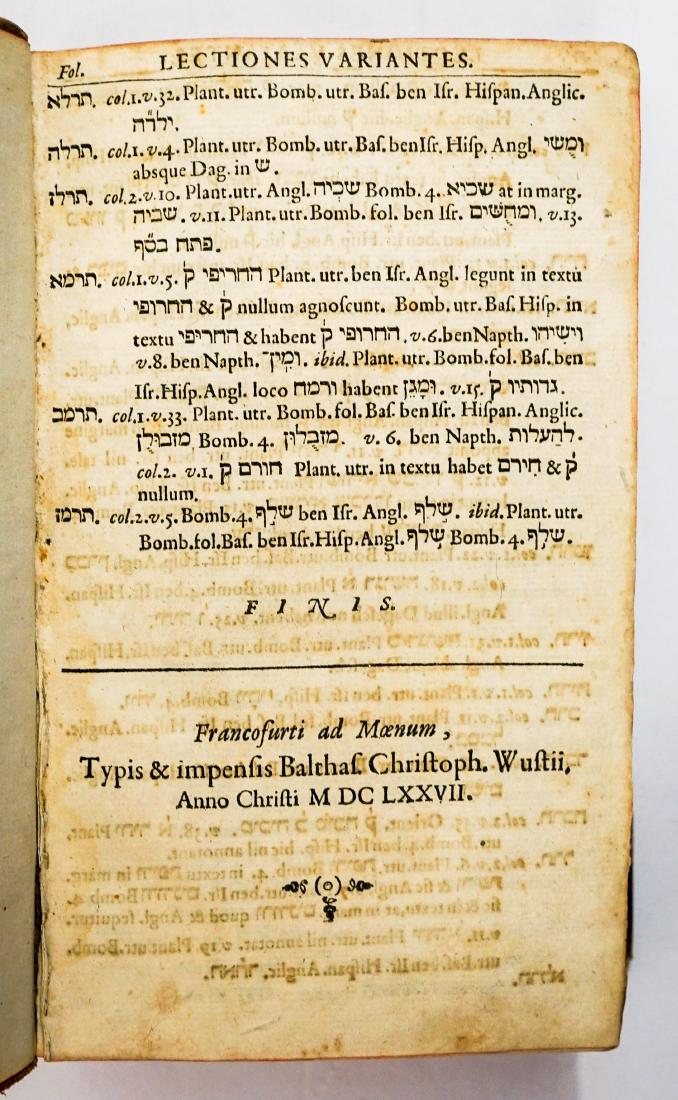 Fol. LECTIONES VARIANTES.
תרלא. col.1.v.32. Plant. utr. Bomb. utr. Baſ. ben Iſr. Hiſpan. Anglic.
ילדה.
תרלה. col.1.v.4. Plant. utr. Bomb. utr. Baſ. ben Iſr. Hiſp. Angl. ומשי
absque Dag. in ש.
תרלז. col.2.v.10. Plant. utr. Angl. שכיה Bomb. 4. שכיא at in marg.
שביה. v.11. Plant. utr. Bomb. fol. ben Iſr. ומחשים. v.13.
פתח בסף.
תרמא. col.1.v.5. החריפי ק Plant. utr. ben Iſr. Angl. legunt in textu
החרופי & ק nullum agnoſcunt. Bomb. utr. Baſ. Hiſp. in
textu החריפי & habent החרופי ק. v.6. ben Napth. וישיהו
v.8. ben Napth. ־ומין. ibid. Plant. utr. Bomb. fol. Baſ. ben
Iſr. Hiſp. Angl. loco ורמח habent ומגן. v.15. גדותיו ק.
תרמב. col.1.v.33. Plant. utr. Bomb. fol. Baſ. ben Iſr. Hiſpan. Anglic.
מזבולן Bomb. 4. מזבלון. v. 6. ben Napth. להעלות.
col.2. v.1. חורם ק Plant. utr. in textu habet חירם & ק
nullum.
תרמז. col.2.v.5. Bomb. 4. שלף ben Iſr. Angl. שלף. ibid. Plant. utr.
Bomb. fol. Baſ. ben Iſr. Hiſp. Angl. שלף Bomb. 4. שלף.
FINIS.
Francofurti ad Mœnum,
Typis & impenſis Balthaſ. Chriſtoph. Wuſtii,
Anno Chriſti M DC LXXVII.